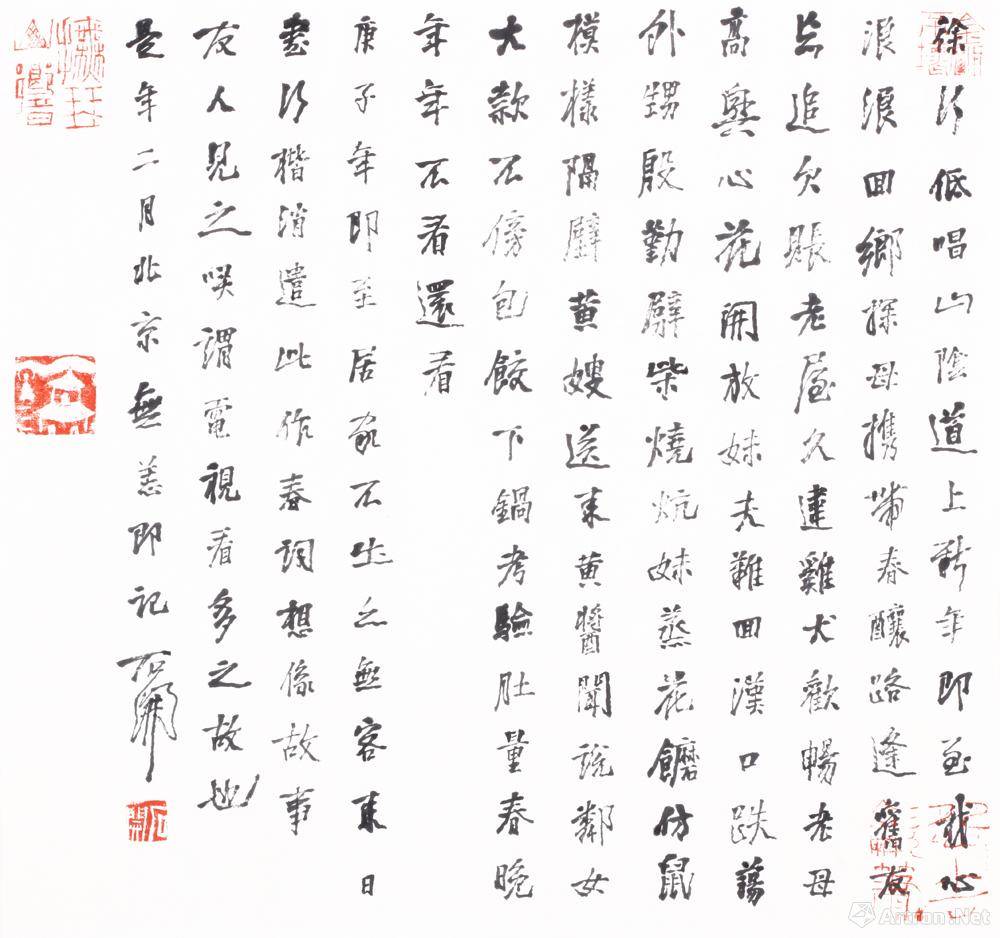 徐行低唱山陰道上新年即至我心
浪浪回鄉探母攜帶春釀路逢舊友
忘追欠賬老屋久違雞犬歡暢老母
高興心花開放妹夫難回漢口跌蕩
外甥殷勤劈柴燒炕妹蒸花饝仿鼠
模樣隔壁黄嫂送來黄醬聞說鄰女
大款不傍包餃下鍋考驗肚量春晚
年年不看還看
庚子年即至居家不出亦無客來日
書行楷消遣此作春詞想像故事
友人見之咲謂電視看多之故也
是年二月北京無恙即記
Artron.Net